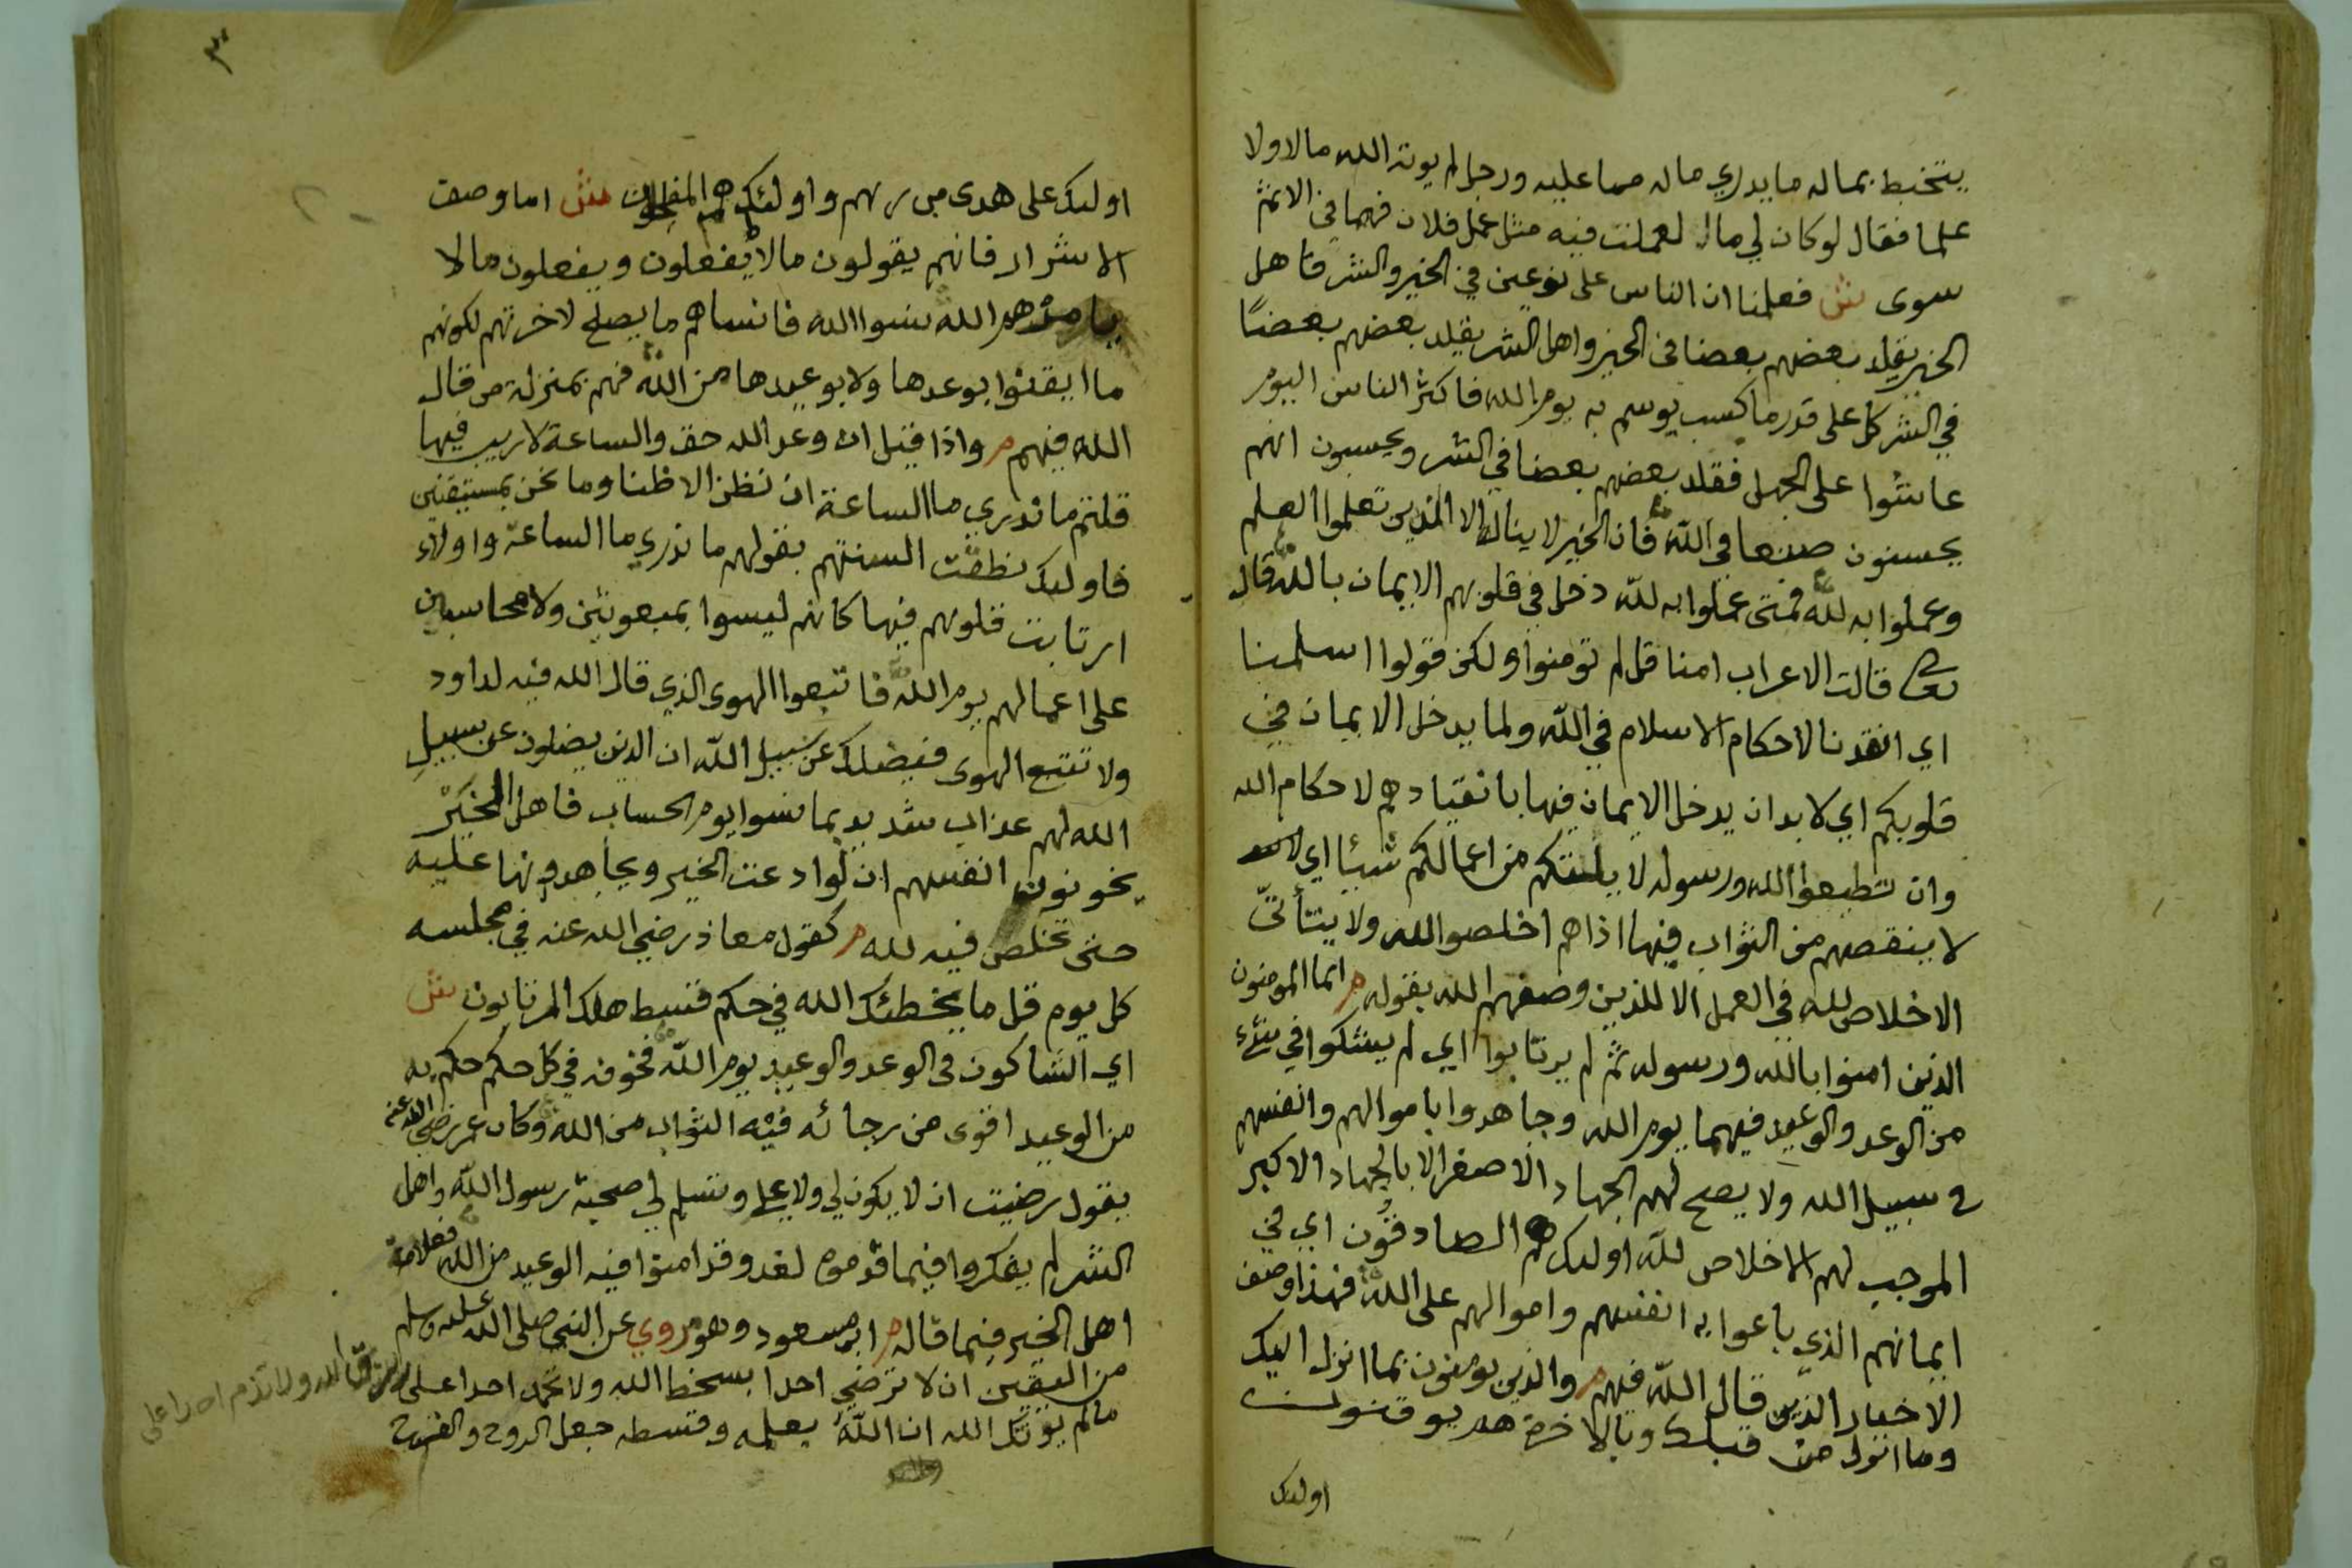 يتخبط بماله ما يدري ماله مما عليه ورجل لم يوته الله مالا ولا
علما فقال لو كان لي مال لعملت فيه مثل عمل فلان فهما في الاثم
سوى ش فعلمنا ان الناس على نوعين في الخير والشر فاهل
الخير يقلد بعضهم بعضا في الخير واهل الشر يقلد بعضهم بعضًا
في الشر كل على قدر ما كسب يوسم به يوم الله فاكثر الناس اليوم
عاشوا على الجهل فقلد بعضهم بعضا في الشر ويحسبون انهم
يحسنون صنعا في الله فان الخير لا يناله الا الذين تعلموا العلم
وعملوا به لله فمتى عملوا به لله دخل في قلوبهم الايمان بالله قال
تعالى قالت الاعراب امنا قل لم تومنوا ولكن قولوا اسلمنا
اي انقدنا لاحكام الاسلام في الله ولما يدخل الايمان في
قلوبكم اي لا بد ان يدخل الايمان فيها بانقيادهم لاحكام الله
وان تطيعوا الله ورسوله لا يلتكم من اعمالكم شيئا اي
لا ينقصهم من الثواب فيها اذا هم اخلصوا لله ولا يتأتّ
الاخلاص لله في العمل الا للذين وصفهم الله بقوله م انما المومنون
الذين امنوا بالله ورسوله ثم لم يرتابوا اي لم يشكوا في شيء
من الوعد والوعيد فيهما يوم الله وجاهدوا باموالهم وانفسهم
في سبيل الله ولا يصح لهم الجهاد الاصغر الا بالجهاد الاكبر
الموجب لهم الاخلاص لله اولئك هم الصادقون اي في
ايمانهم الذي باعوا به انفسهم واموالهم على الله فهذا وصف
الاخيار الذين قال الله فيهم م والذين يومنون بما انزل اليك
وما انزل من قبلك وبالاخرة هم يوقنون
اولئك
٣
اولئك على هدى من ربهم واولئك هم المفلحون ش اما وصف
الاشرار فانهم يقولون ما لا يفعلون ويفعلون ما لا
يامرهم الله نسوا الله فانساهم ما يصلح لاخرتهم لكونهم
ما ايقنوا بوعدها ولا بوعيدها من الله فهم بمنزلة من قال
الله فيهم م واذا قيل ان وعد الله حق والساعة لا ريب فيها
قلتم ما ندري ما الساعة ان نظن الا ظنا وما نحن بمستيقنين
فاولئك نطقت السنتهم بقولهم ما ندري ما الساعة واولاء
ارتابت قلوبهم فيها كانهم ليسوا بمبعوثين ولا محاسبين
على اعمالهم يوم الله فاتبعوا الهوى الذي قال الله فيه لداود
ولا تتبع الهوى فيضلك عن سبيل الله ان الذين يضلون عن سبيل
الله لهم عذاب شديد بما نسوا يوم الحساب فاهل الخير
يخونون انفسهم ان لو ادعت الخير ويجاهدونها عليه
حتى تخلص فيه لله م كقول معاذ رضي الله عنه في مجلسه
كل يوم قل ما يخطئك الله في حكم قسط هلك المرتابون ش
اي الشاكون في الوعد والوعيد يوم الله فخوفه في كل حكم حكم به
من الوعيد اقوى من رجائه فيه الثواب من الله وكان عمر رضي الله عنه
يقول رضيت ان لا يكون لي ولا علي وتسلم لي صحبة رسول الله واهل
الشر لم يفكروا فيما قدموه لغد وقد امنوا فيه الوعيد من الله فعلامة
اهل الخير فيما قاله م ابن مسعود وهو مروي عن النبي صلى الله عليه وسلم
من اليقين ان لا ترضي احدا بسخط الله ولا تحمد احدا على رزق الله ولا تذم احدا على
ما لم يوتك الله ان الله بعلمه وقسطه جعل الروح والفرح